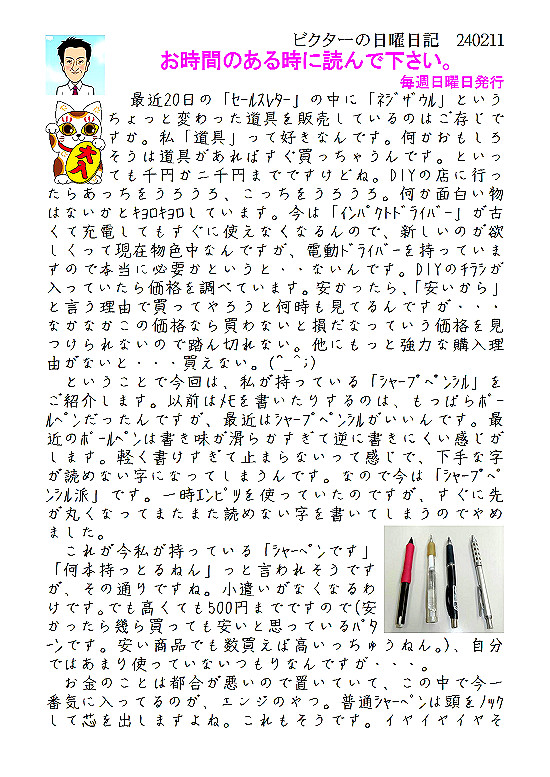 ビクターの日曜日記　240211
お時間のある時に読んで下さい。
毎週日曜日発行
最近20日の「ｾｰﾙｽﾚﾀｰ」の中に「ﾈｼﾞｻﾞｳﾙ」という
ちょっと変わった道具を販売しているのはご存じで
すか。私「道具」って好きなんです。何かおもしろ
そうは道具があればすぐ買っちゃうんです。といっ
ても千円か二千円までですけどね。DIYの店に行っ
たらあっちをうろうろ、こっちをうろうろ。何か面白い物
はないかとｷｮﾛｷｮﾛしています。今は「ｲﾝﾊﾟｸﾄﾄﾞﾗｲﾊﾞｰ」が古
くて充電してもすぐに使えなくなるんで、新しいのが欲
しくって現在物色中なんですが、電動ﾄﾞﾗｲﾊﾞｰを持っていま
すので本当に必要かというと・・ないんです。DIYのﾁﾗｼが
入っていたら価格を調べています。安かったら、「安いから」
と言う理由で買ってやろうと何時も見てるんですが・・・
なかなかこの価格なら買わないと損だなっていう価格を見
つけられないので踏ん切れない。他にもっと強力な購入理
由がないと・・・買えない。(^_^;)
ということで今回は、私が持っている「ｼｬｰﾌﾟﾍﾟﾝｼﾙ」を
ご紹介します。以前はﾒﾓを書いたりするのは、もっぱらﾎﾞｰ
ﾙﾍﾟﾝだったんですが、最近はｼｬｰﾌﾟﾍﾟﾝｼﾙがいいんです。最
近のﾎﾞｰﾙﾍﾟﾝは書き味が滑らかすぎて逆に書きにくい感じが
します。軽く書けすぎて止まらないって感じで、下手な字
が読めない字になってしまうんです。なので今は「ｼｬｰﾌﾟﾍﾟ
ﾝｼﾙ派」です。一時ｴﾝﾋﾟﾂを使っていたのですが、すぐに先
が丸くなってまたまた読めない字を書いてしまうのでやめ
ました。
これが今私が持っている「ｼｬｰﾍﾟﾝです」
「何本持っとるねん」っと言われそうです
が、その通りですね。小遣いがなくなるわ
けです。でも高くても500円までですので(安
かったら幾ら買っても安いと思っているﾊﾟﾀ
ｰﾝです。安い商品でも数買えば高いっちゅうねん。)、自分
ではあまり使っていないつもりなんですが・・・。
お金のことは都合が悪いので置いていて、この中で今一
番気に入ってるのが、エンジのやつ。普通ｼｬｰﾍﾟﾝは頭をﾉｯｸ
して芯を出しますよね。これもそうです。イヤイヤイヤそ